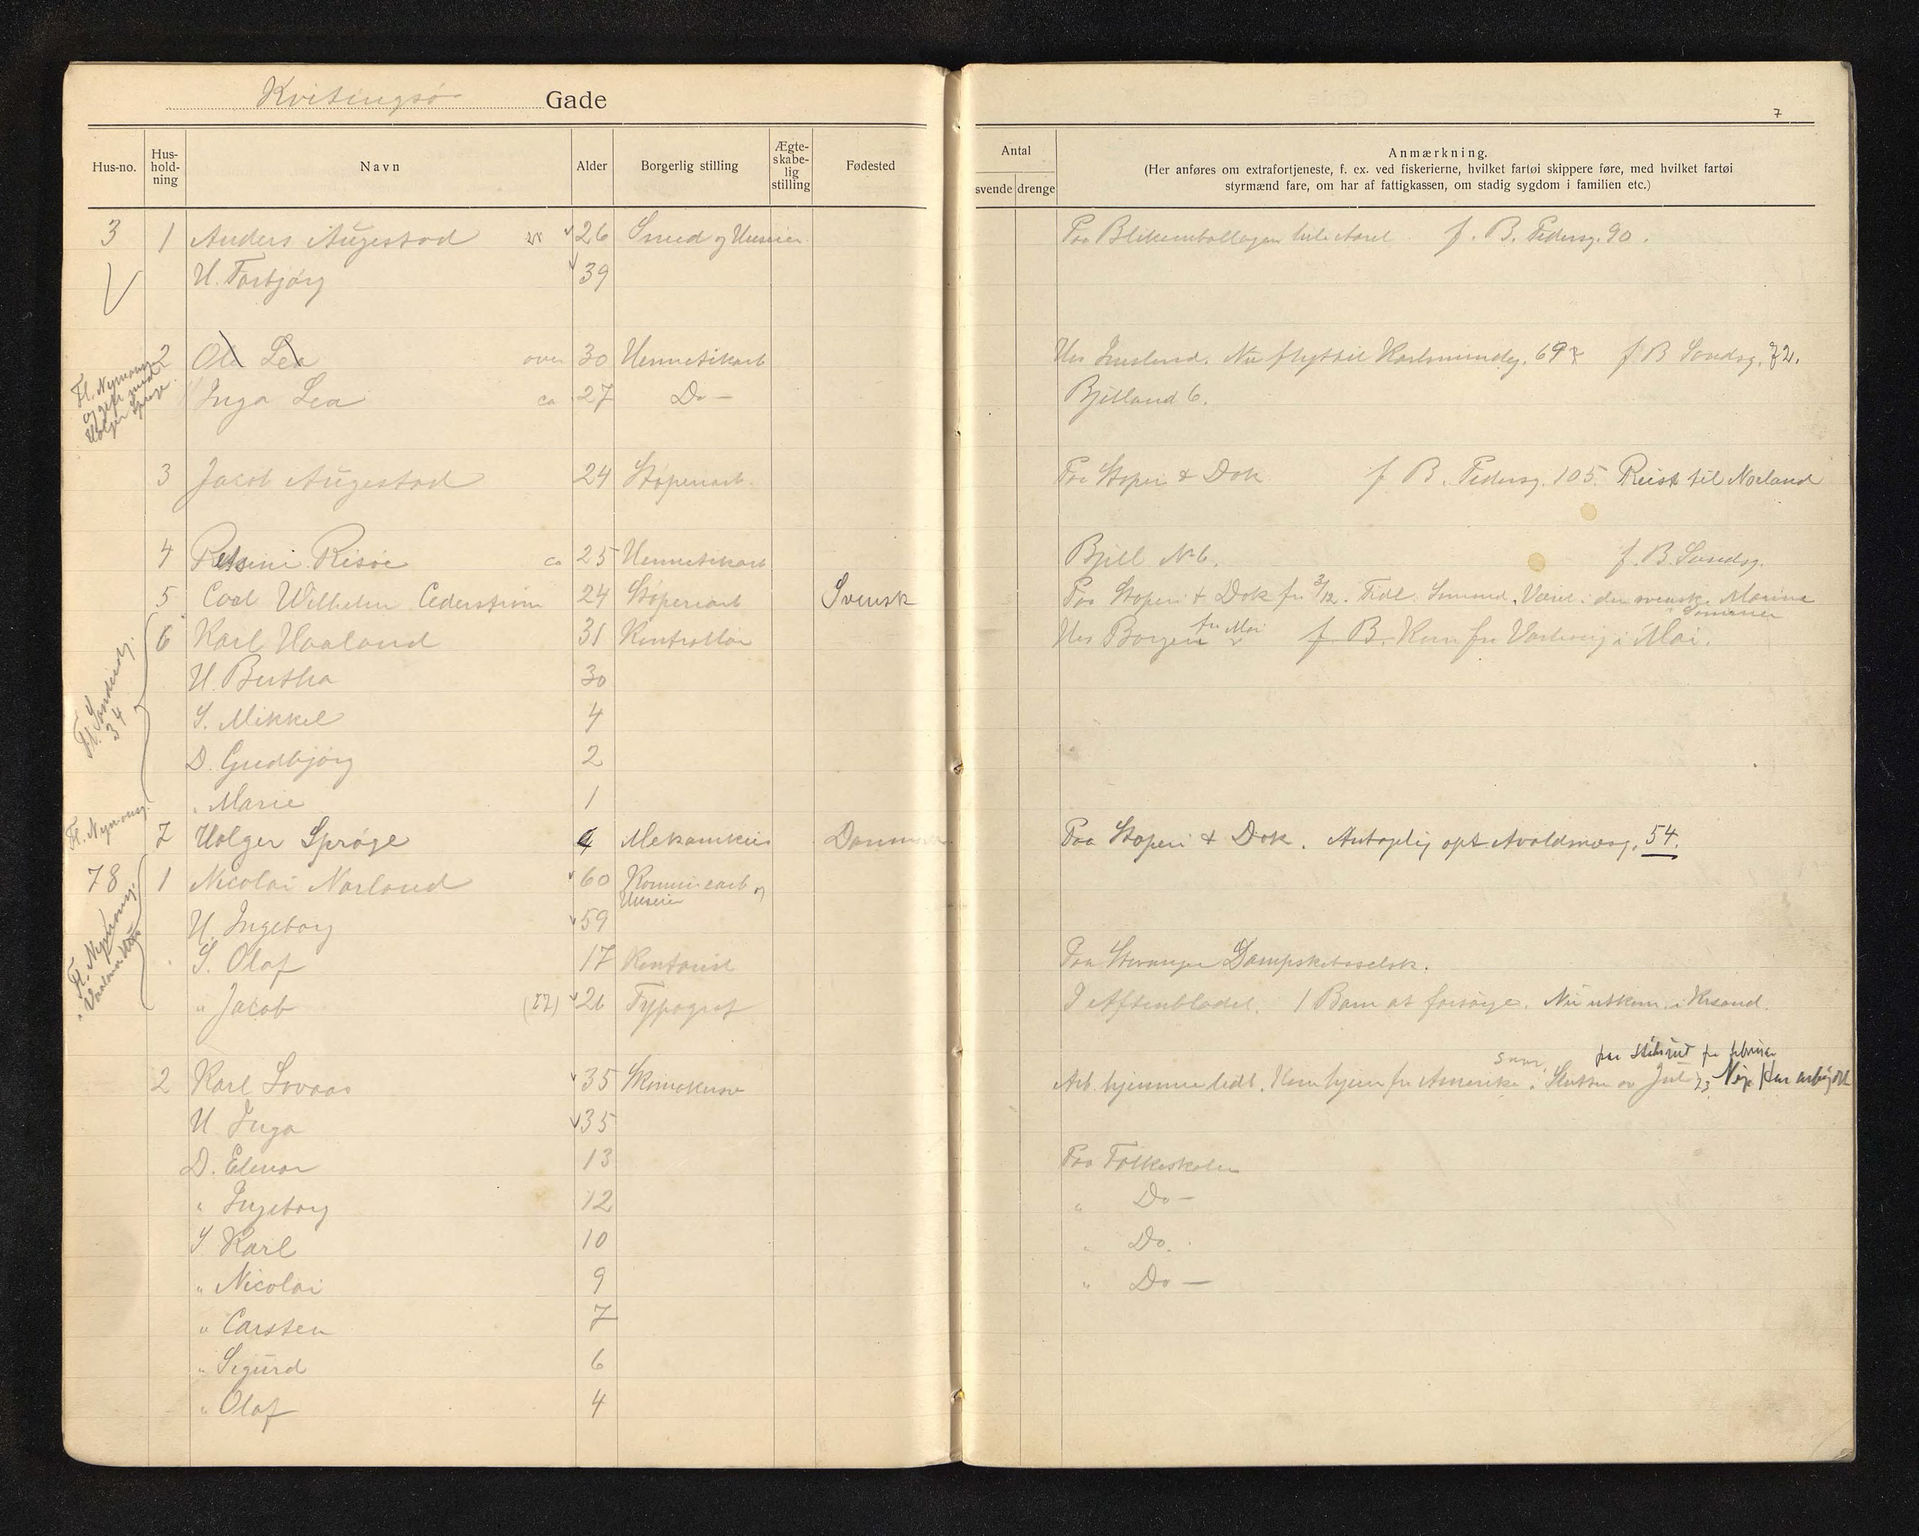 Kvitingsø Gade
7
Hus-no. Hus-hold-ning Navn Alder Borgerlig stilling Ægte-skabe-lig stilling Fødested
Antal svende drenge
Anmærkning.
(Her anføres om extrafortjeneste, f. ex. ved fiskerierne, hvilket fartøi skippere føre, med hvilket fartøi
styrmænd fare, om har af fattigkassen, om stadig sygdom i familien etc.)
3 1 Anders Augestad 26 Smed og Huseier Paa f. B. Pedersg. 90.
H. Torbjørg 39
2 Ole Lea over 30 Hermetikarb Hos Nu flyt til Karlsmindeg. 69 f B Sandsg. 72.
Fl. Nymansg og gift med Holger Sprøge
Inga Lea ca 27 Do - Bjelland 6.
3 Jacob Augestad 24 Støperiarb. Paa Støperi & Dok f B. Pedersg. 105. Reist til Norland
4 Risøe ca 25 Hermetikarb Bjell No 6. f. B. Sandsg.
5 Carl Wilhelm Cederstrøm 24 Støperiarb Svensk Paa Støperi & Dok fra 3/12. Tidl. Sømand. Været i den svenske Marine
Sommer
6 Karl Haaland 31 Kontrollør Hos Borgen fra Mai f. B. Kom fra i Mai.
H. Bertha 30
S. Mikkel 4
Fl. Sandeidg. 34
D. Gudbjørg 2
" Marie 1
Fl. Nymansg.
7 Holger Sprøge Mekanikus Danmark Paa Støperi & Dok. Antagelig opt Avaldsnesg. 54.
78 1 Nicolai Norland 60 Kommunearb og
Huseier
H. Ingeborg 59
Fl. Nymansg.
S. Olaf 17 Kontorist Paa Stavanger Dampskibsselsk.
" Jacob (27) 26 Typograf I Aftenbladet. 1 Barn at forsørge. Nu i Krsand.
2 Karl Lovaas 35 Skomakersv Arb. hjemme lidt. Kom hjem fra Amerika i Slutten av Juli 23
H Inga 35
D. Elenor 13 Paa Folkeskolen
" Ingeborg 12 " Do -
S Karl 10 " Do.
" Nicolai 9 " Do -
" Carsten 7
" Sigurd 6
" Olaf 4